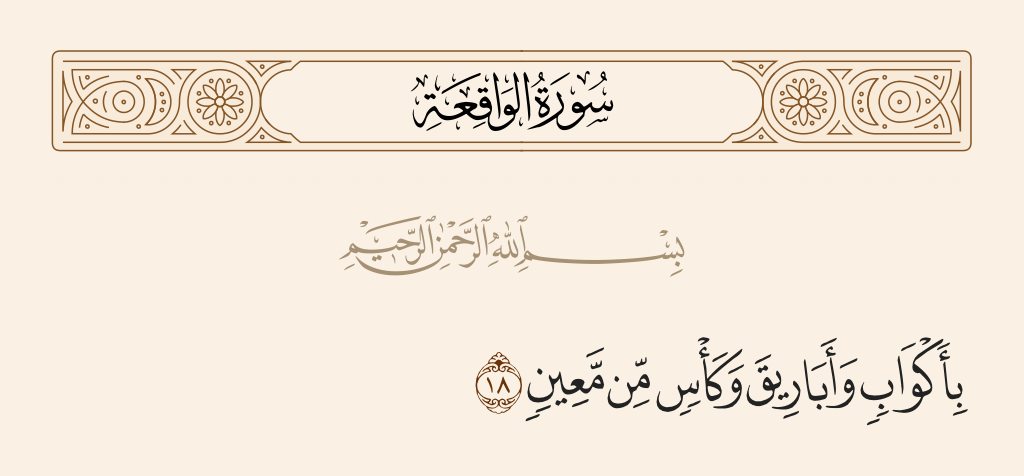 سُورَةُ الوَاقِعَةِ
بِسْمِ ٱللَّهِ ٱلرَّحْمَٰنِ ٱلرَّحِيمِ
بِأَكْوَابٍ وَأَبَارِيقَ وَكَأْسٍ مِّن مَّعِينٍ ١٨